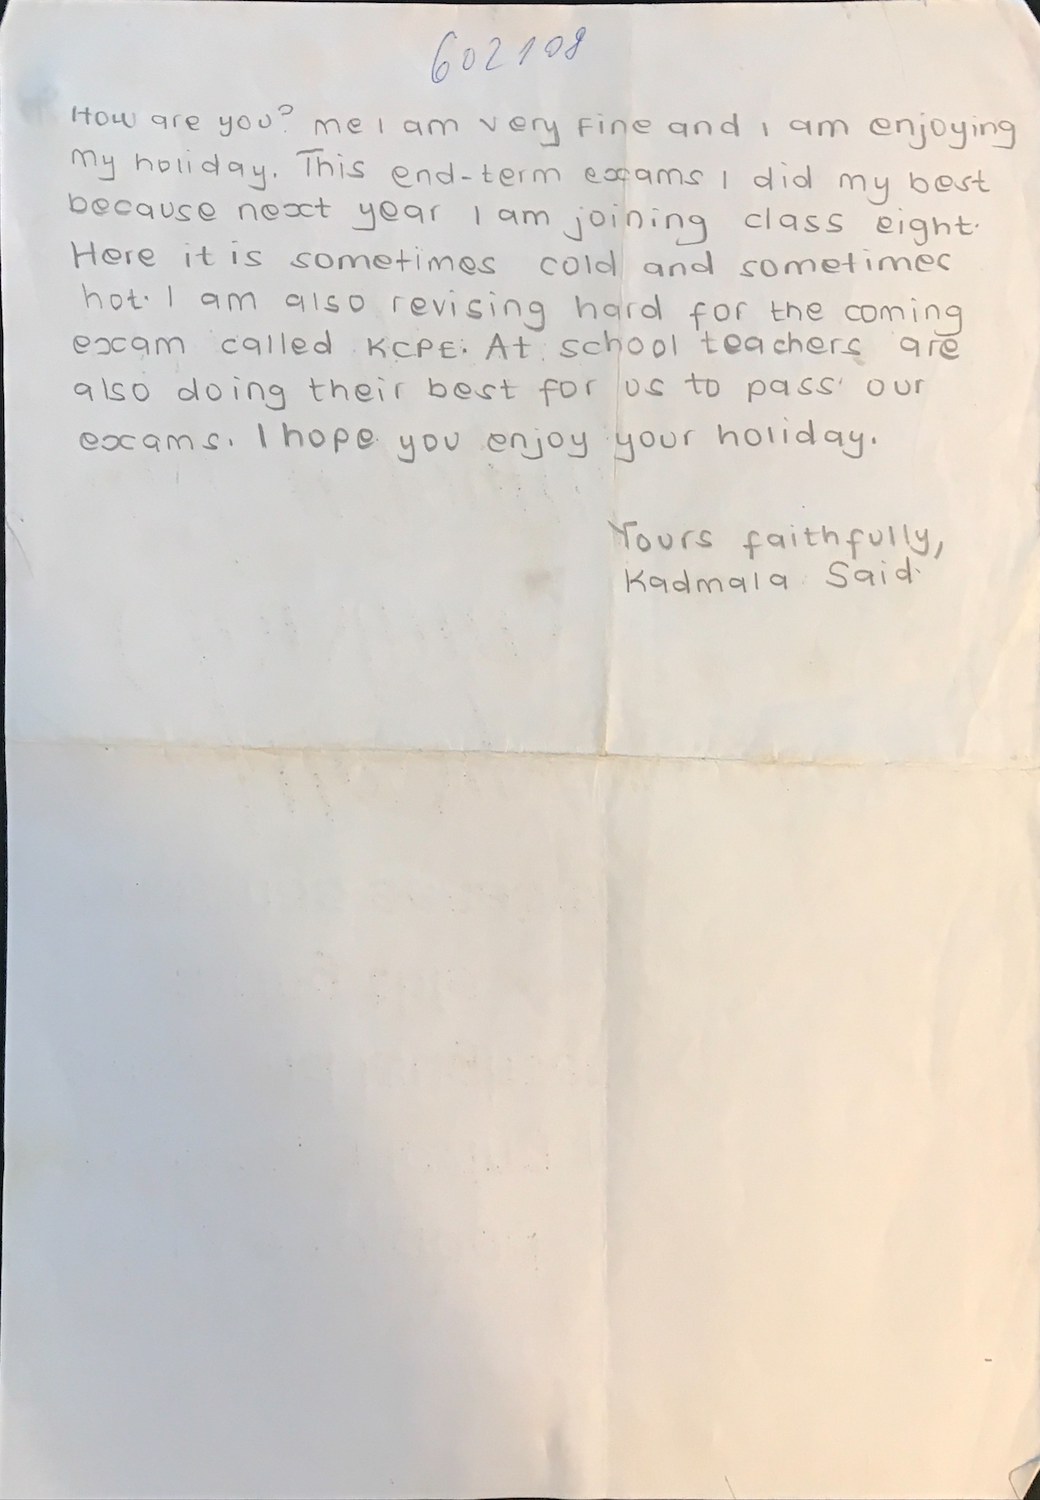 602108
How are you? me I am very fine and I am enjoying
my holiday. This end-term exams I did my best
because next year I am joining class eight.
Here it is sometimes cold and sometimes
hot. I am also revising hard for the coming
exam called KCPE. At school teachers are
also doing their best for us to pass our
exams. I hope you enjoy your holiday.
Yours faithfully,
Kadmala Said.